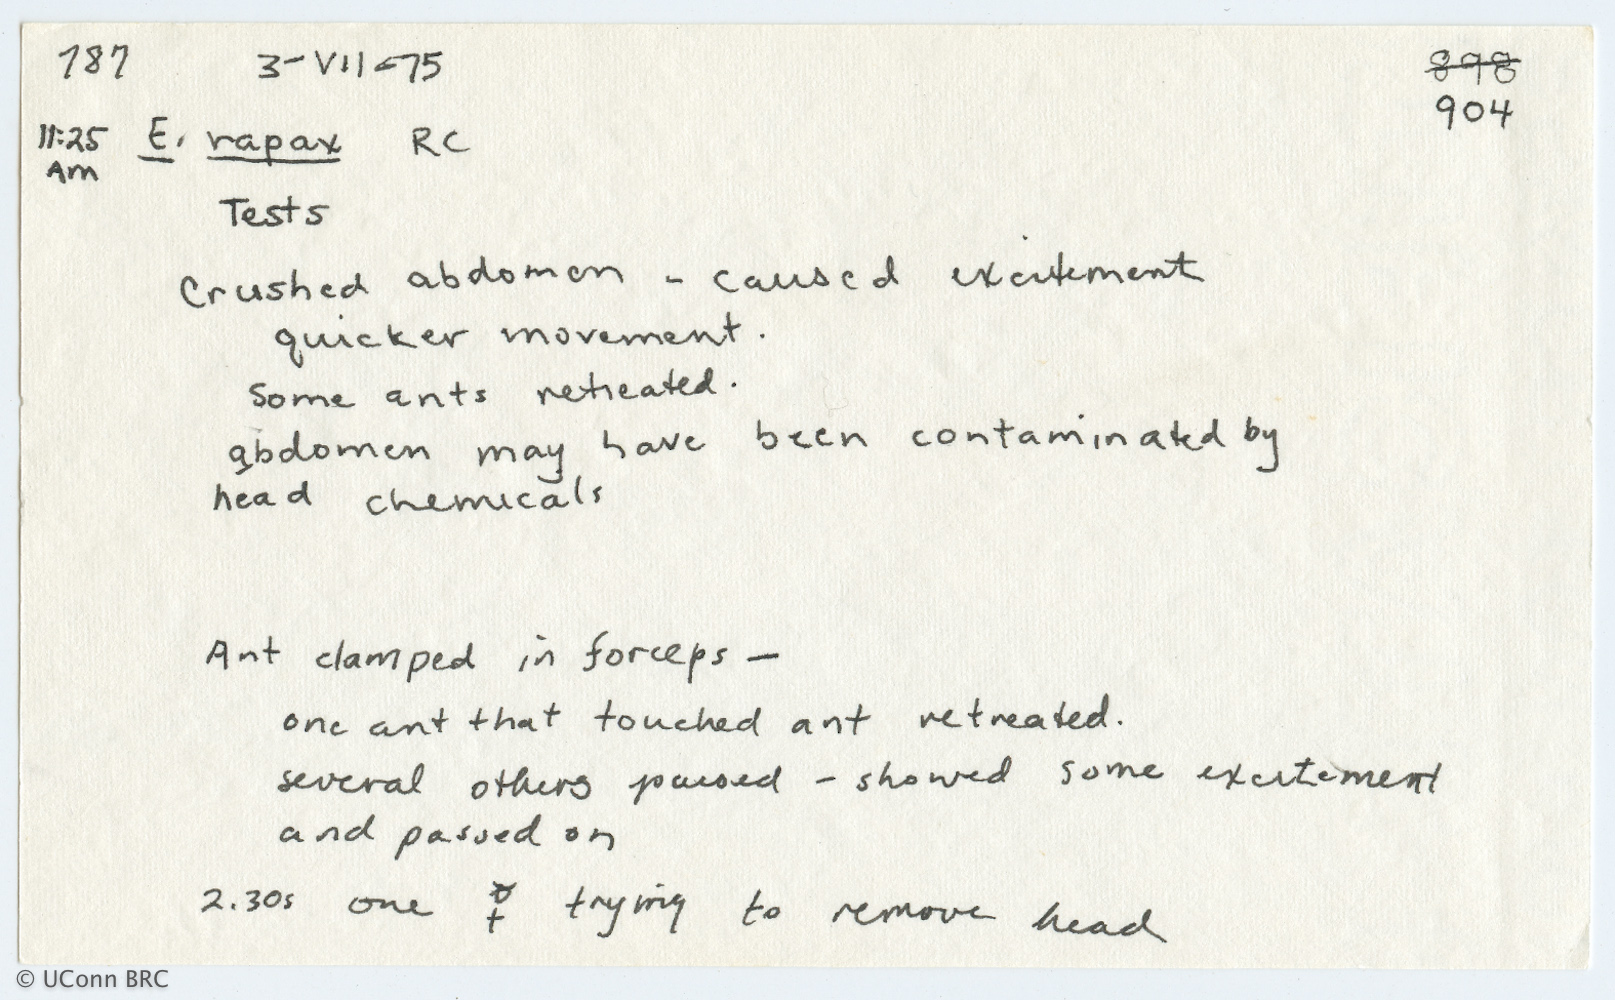 787 3-VII-75 898
904
11:25 E. rapax RC
Am
Tests
Crushed abdomen - caused excitement
quicker movement.
Some ants retreated.
abdomen may have been contaminated by
head chemicals
Ant clamped in forceps —
one ant that touched ant retreated.
several others paused - showed some excitement
and passed on
2.30s one ☿ trying to remove head
© UConn BRC